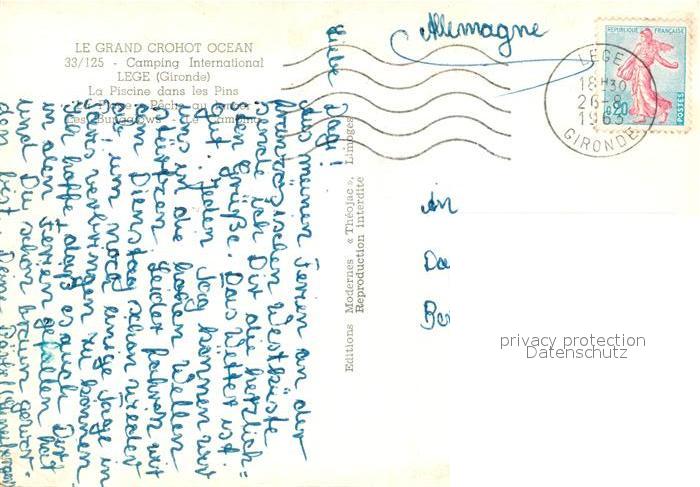 LE GRAND CROHOT OCEAN
33/125 - Camping International
LEGE (Gironde)
La Piscine dans les Pins
La Plage - Pêche au lancer
Les Bungalows - Le Camping
Allemagne
REPUBLIQUE FRANÇAISE
0,20
POSTES
LEGE
18 H 30
26-8
1963
GIRONDE
Liebe !
Aus meinen Ferien an der
französischen Westküste
sende ich Dir die herzlich-
sten Grüße. Das Wetter ist
gut. Jeden Tag können wir
uns in die hohen Wellen
stürzen. Leider fahren wir
am Dienstag schon wieder
um noch einige Tage in
Paris verbringen zu können.
Ich hoffe, daß es auch Dir
in den Ferien gefallen hat
und Du schon braun gewor-
den bist. Deine
Editions Modernes « Théojac », Limoges
Reproduction interdite
An
Da
Be
privacy protection
Datenschutz